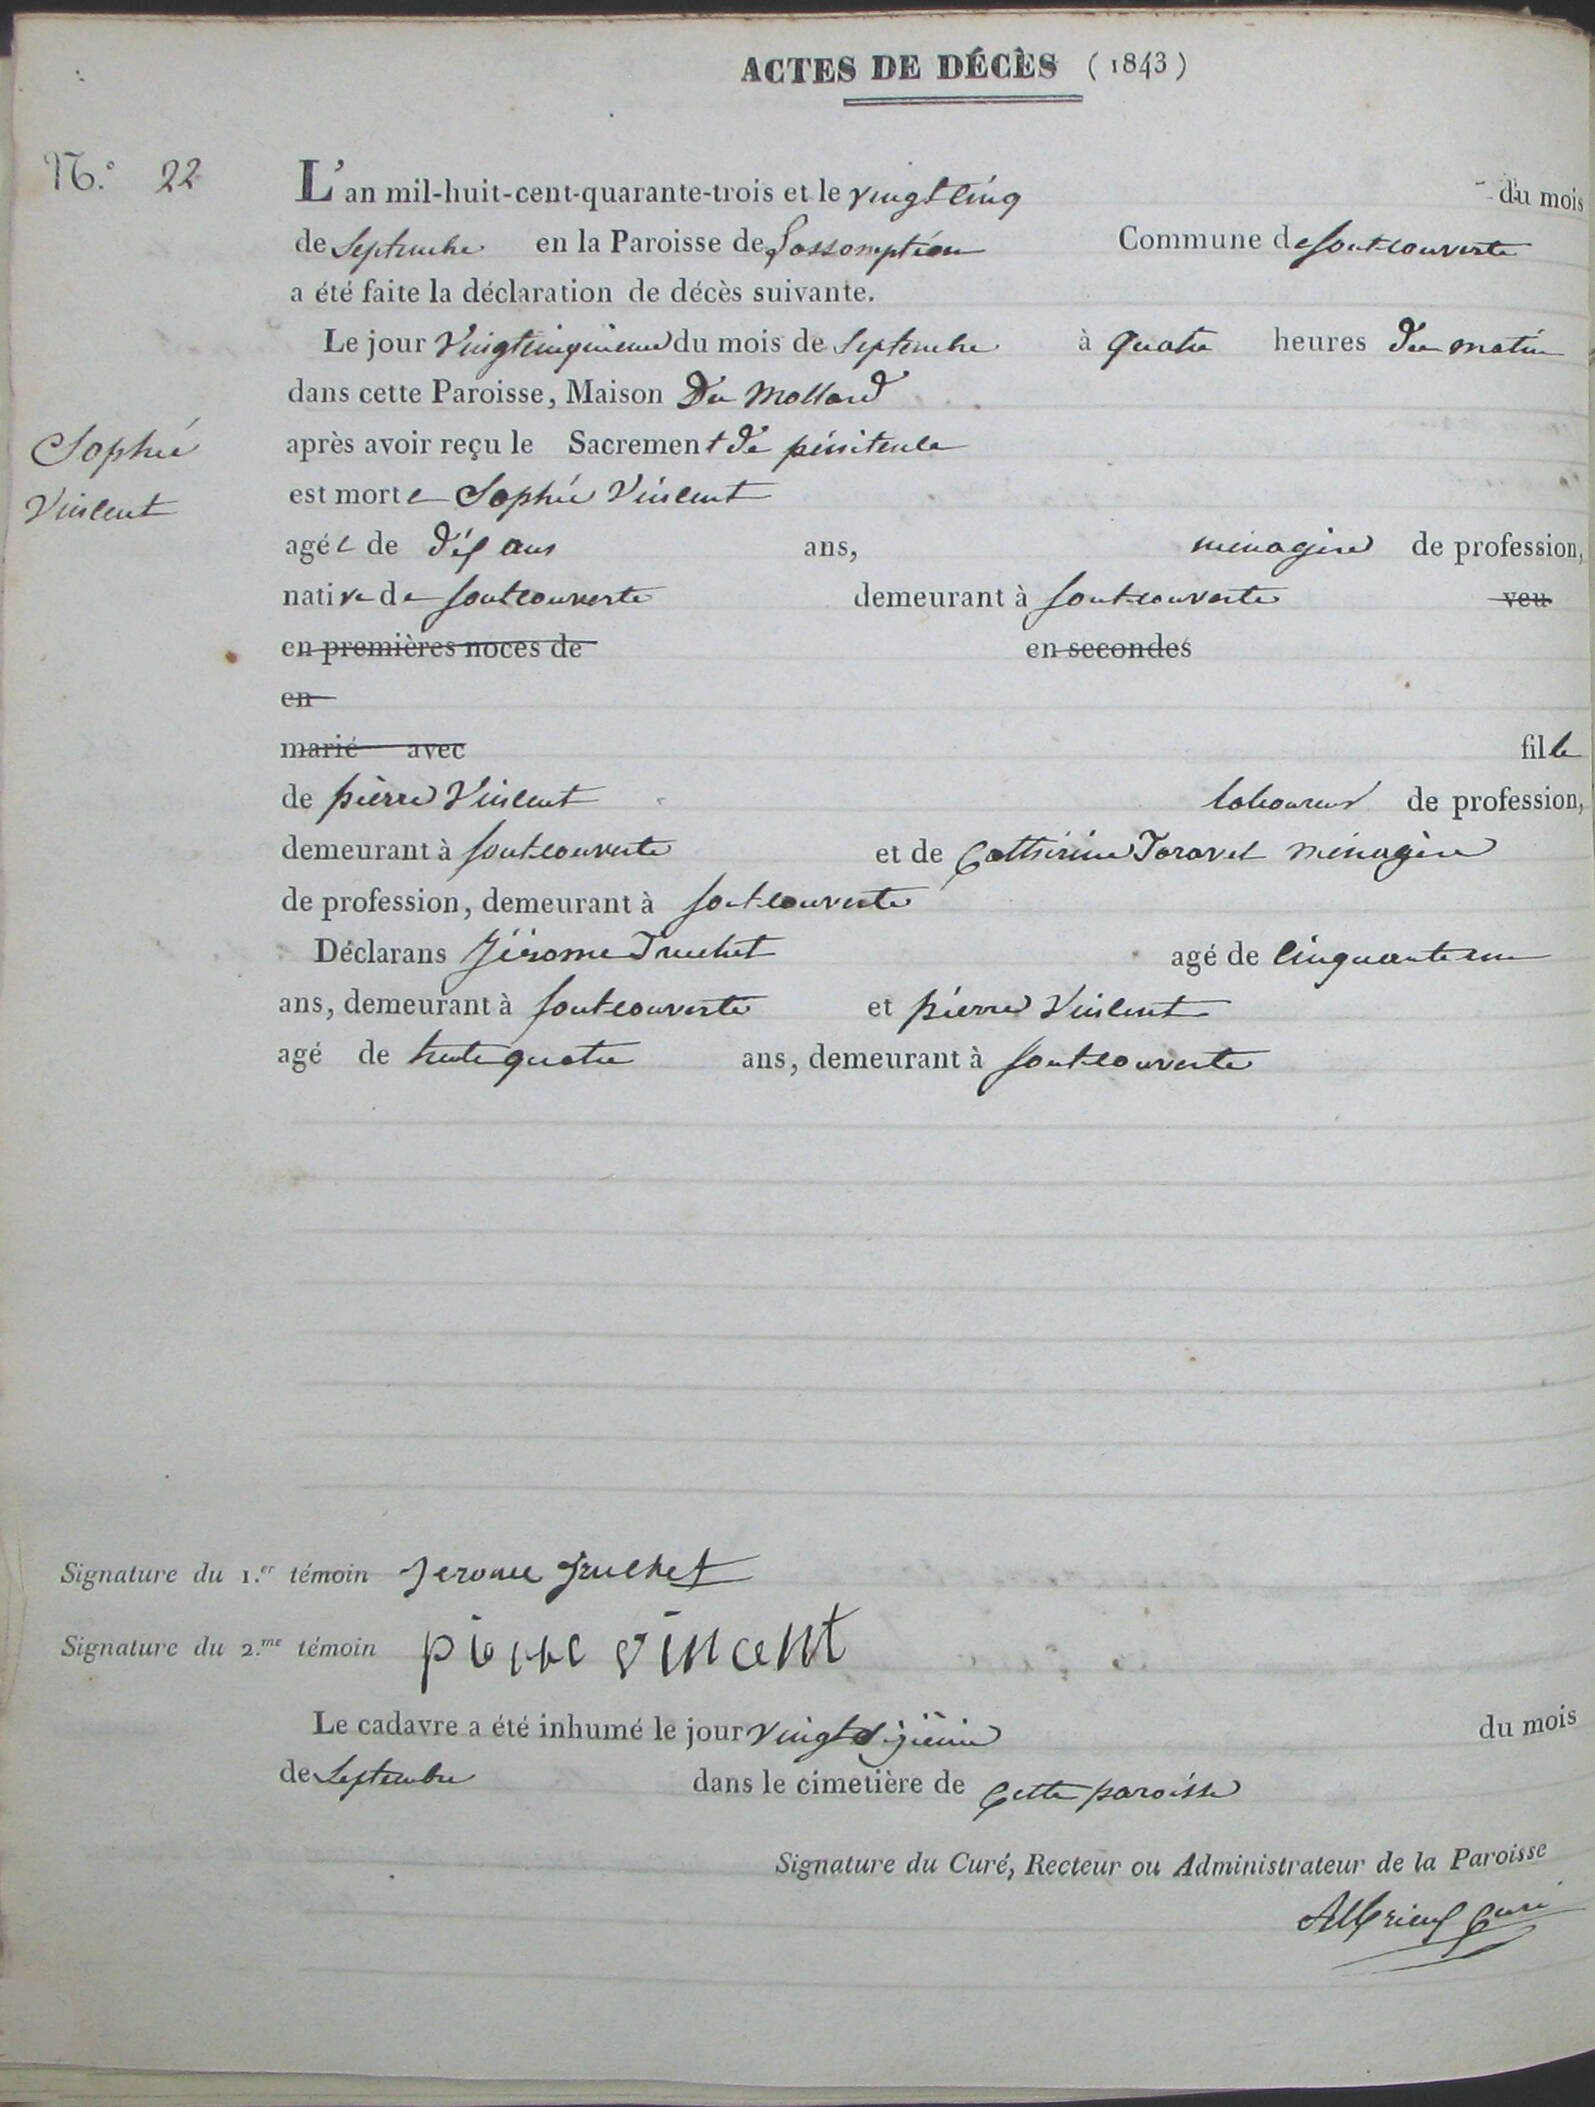 ACTES DE DÉCÈS (1843)
N.° 22
L'an mil-huit-cent-quarante-trois et le vingt cinq du mois
de Septembre en la Paroisse de Lassomption Commune de fontcouverte
a été faite la déclaration de décès suivante.
Le jour Vingtcinquieme du mois de Septembre à quatre heures du matin
dans cette Paroisse, Maison Du Mollard
Sophie
Vincent
après avoir reçu le Sacrement de pénitence
est morte Sophie Vincent
agée de dix ans ans, ménagère de profession,
native de fontcouverte demeurant à fontcouverte veu
en premières noces de en secondes
en
marié avec fille
de pierre Vincent laboureur de profession,
demeurant à fontcouverte et de Catherine Taravel ménagère
de profession, demeurant à fontcouverte
Déclarans Jérome Truchet agé de cinquante un
ans, demeurant à fontcouverte et pierre Vincent
agé de trente quatre ans, demeurant à fontcouverte
Signature du 1.er témoin Jerome Truchet
Signature du 2.me témoin pierre vincent
Le cadavre a été inhumé le jour vingt sixième du mois
de Septembre dans le cimetière de cette paroisse
Signature du Curé, Recteur ou Administrateur de la Paroisse
Albrieux curé